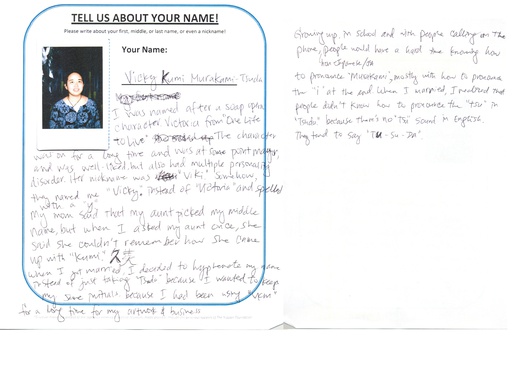 TELL US ABOUT YOUR NAME!
Please write about your first, middle, or last name, or even a nickname!
Your Name:
Vicky Kumi Murakami-Tsuda
I was named after a soap opera
character Victoria from "One Life
to Live" The character
was on for a long time and was at some point
and was well-liked but also had multiple personality
disorder. Her nickname was "Viki." Somehow,
they named me "Vicky" instead of "Victoria" and spelled
with a "y."
My mom said that my aunt picked my middle
name, but when I asked my aunt once, she
said she couldn't remember how she came
up with "Kumi." 久美
When I got married, I decided to hyphenate my name
instead of just taking "Tsuda" because I wanted to keep
my same initials because I had been using "VKM"
for a long time for my artwork & business
Growing up, in school and with people calling on the
phone, people would have a hard time knowing how
to pronounce "Murakami", mostly with how to pronounce
the "i" at the end. When I married, I realized that
people didn't know how to pronounce the "tsu" in
"Tsuda" because there's no "tsu" sound in English.
They tend to say "Tu-Su-Da".